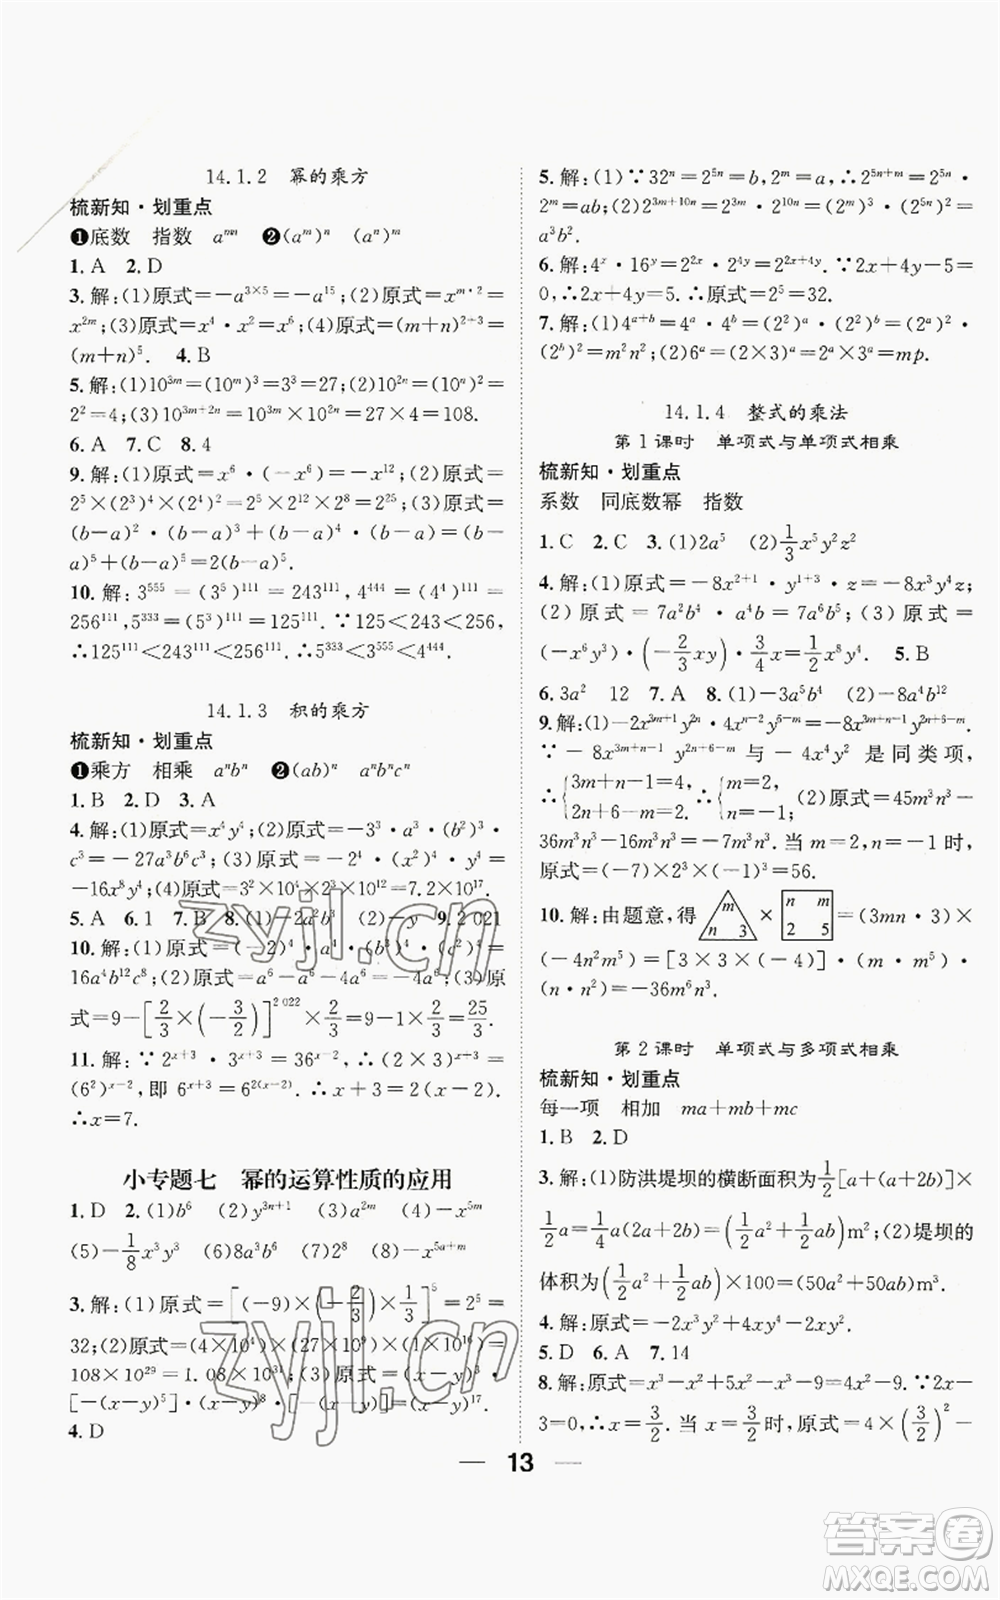 14.1.2 幂的乘方
梳新知·划重点
❶底数 指数 aᵐⁿ ❷(aᵐ)ⁿ (aⁿ)ᵐ
1. A 2. D
3. 解:(1)原式=-a^{3×5}=-a^{15};(2)原式=x^{m·2}=
x^{2m};(3)原式=x⁴·x²=x⁶;(4)原式=(m+n)^{2+3}=
(m+n)⁵. 4. B
5. 解:(1)10^{3m}=(10^m)³=3³=27;(2)10^{2n}=(10^n)²=
2²=4;(3)10^{3m+2n}=10^{3m}×10^{2n}=27×4=108.
6. A 7. C 8. 4
9. 解:(1)原式=x⁶·(-x⁹)=-x^{15};(2)原式=
2⁵×(2²)⁴×(2⁴)²=2⁵×2⁸×2⁸=2^{21};(3)原式=
(b-a)²·(b-a)³+(b-a)⁴·(b-a)=(b-a)⁵+
(b-a)⁵=2(b-a)⁵.
10. 解:3^{555}=(3⁵)^{111}=243^{111},4^{444}=(4⁴)^{111}=
256^{111},5^{333}=(5³)^{111}=125^{111}. ∵125<243<256,
∴125^{111}<243^{111}<256^{111}. ∴5^{333}<3^{555}<4^{444}.
14.1.3 积的乘方
梳新知·划重点
❶乘方 相乘 aⁿbⁿ ❷(ab)ⁿ aⁿbⁿcⁿ
1. B 2. D 3. A
4. 解:(1)原式=x⁴y⁴;(2)原式=-3³·a³·(b²)³·
c³=-27a³b⁶c³;(3)原式=-2⁴·(x²)⁴·y⁴=
-16x⁸y⁴;(4)原式=3²×10⁴×2³×10⁶=7.2×10^{11}.
5. A 6. 1 7. B 8. (1)-2a²b³ (2)-y 9. 2 021
10. 解:(1)原式=(-2)⁴·a⁴·(b³)⁴·(c²)⁴=
16a⁴b^{12}c⁸;(2)原式=a⁶-a⁶-4a⁶=-4a⁶;(3)原
式=9-[2/3×(-3/2)]^{2 022}×2/3=9-1×2/3=25/3.
11. 解:∵2^{x+3}·3^{x+3}=36^{x-2},∴(2×3)^{x+3}=
(6²)^{x-2},即6^{x+3}=6^{2(x-2)}. ∴x+3=2(x-2).
∴x=7.
小专题七 幂的运算性质的应用
1. D 2. (1)b⁶ (2)y^{3n+1} (3)a^{2m} (4)-x^{5m}
(5)-1/8x³y³ (6)8a³b⁶ (7)2⁸ (8)-x^{5a+m}
3. 解:(1)原式=[(-9)×(-2/3)×1/3]⁵=2⁵=
32;(2)原式=(4×10⁴)×(27×10⁹)×(1×10^{16})=
108×10^{29}=1.08×10^{31};(3)原式=(x-y)³·
[-(x-y)⁵]·(x-y)⁸·(x-y)=-(x-y)^{17}.
4. D
5. 解:(1)∵32ⁿ=2^{5n}=b,2^m=a,∴2^{5n+m}=2^{5n}·
2^m=ab;(2)2^{3m+10n}=2^{3m}·2^{10n}=(2^m)³·(2^{5n})²=
a³b².
6. 解:4^x·16^y=2^{2x}·2^{4y}=2^{2x+4y}. ∵2x+4y-5=
0,∴2x+4y=5. ∴原式=2⁵=32.
7. 解:(1)4^{a+b}=4^a·4^b=(2²)^a·(2²)^b=(2^a)²·
(2^b)²=m²n²;(2)6^a=(2×3)^a=2^a×3^a=mp.
14.1.4 整式的乘法
第1课时 单项式与单项式相乘
梳新知·划重点
系数 同底数幂 指数
1. C 2. C 3. (1)2a⁵ (2)1/3x⁵y²z²
4. 解:(1)原式=-8x^{2+1}·y^{1+3}·z=-8x³y⁴z;
(2)原式=7a²b⁴·a⁴b²=7a⁶b⁶;(3)原式=
(-x⁶y³)·(-2/3xy)·3/4x=1/2x⁸y⁴. 5. B
6. 3a² 12 7. A 8. (1)-3x³y³ (2)-9a⁶b¹²
9. 解:(1)-2x^{3m+1}y^{2n}·4x^{n-2}y^{6-m}=-8x^{3m+n-1}y^{2n+6-m}.
∵-8x^{3m+n-1}y^{2n+6-m}与-4x⁴y²是同类项,
∴{3m+n-1=4, 2n+6-m=2. ∴{m=2, n=-1. (2)原式=45m³n³-
36m³n³-16m³n³=-7m³n³. 当m=2,n=-1时,
原式=(-7)×2³×(-1)³=56.
10. 解:由题意,得 m n 3 × n m 2 5 =(3mn·3)×
(-4n²m⁵)=[3×3×(-4)]·(m·m⁵)·
(n·n²)=-36m⁶n³.
第2课时 单项式与多项式相乘
梳新知·划重点
每一项 相加 ma+mb+mc
1. B 2. D
3. 解:(1)防洪堤坝的横断面积为1/2[a+(a+2b)]×
1/2a=1/4a(2a+2b)=(1/2a²+1/2ab)m²;(2)堤坝的
体积为(1/2a²+1/2ab)×100=(50a²+50ab)m³.
4. 解:原式=-3x³y²+4x²y²-x³y²=-4x³y²+4x²y².
5. D 6. A 7. 14
8. 解:原式=x³-x³+5x²-x²-9=4x²-9. ∵2x-
3=0,∴x=3/2. 当x=3/2时,原式=4×(3/2)²-
13
zyjl.cn
zyjl.cn
答案卷
MXQE.COM